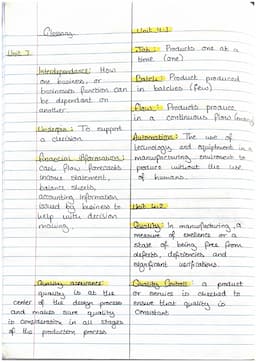 Glossary
Unit 3
Interdependance: How
one business, or
businesses function can
be dependant on
another.
Underpin: To support
a decision
Financial Information:
Cash flow forecasts
income statement,
balance sheets,
accounting information
issued by business to
help with decision
making.
Quality assurance
quality is at the
center of the design process
and makes sure quality
is consideration in all stages
of the production process
Unit 4.1
Job: Products one at a
time (one)
Batch: Product produced
in batches (few)
Flow: Products produce
in a continuous flow
Automation: The use of
technology and equipment in a
manufacturing enviroment to
produce without the use
of humans.
Unit 4.2
Quality: In manufacturing, a
measure of excellence or a
state of being free from
defects, deficiencies and
significant variations.
Quality Control: a product
or service is checked to
ensure that quality is
consistant